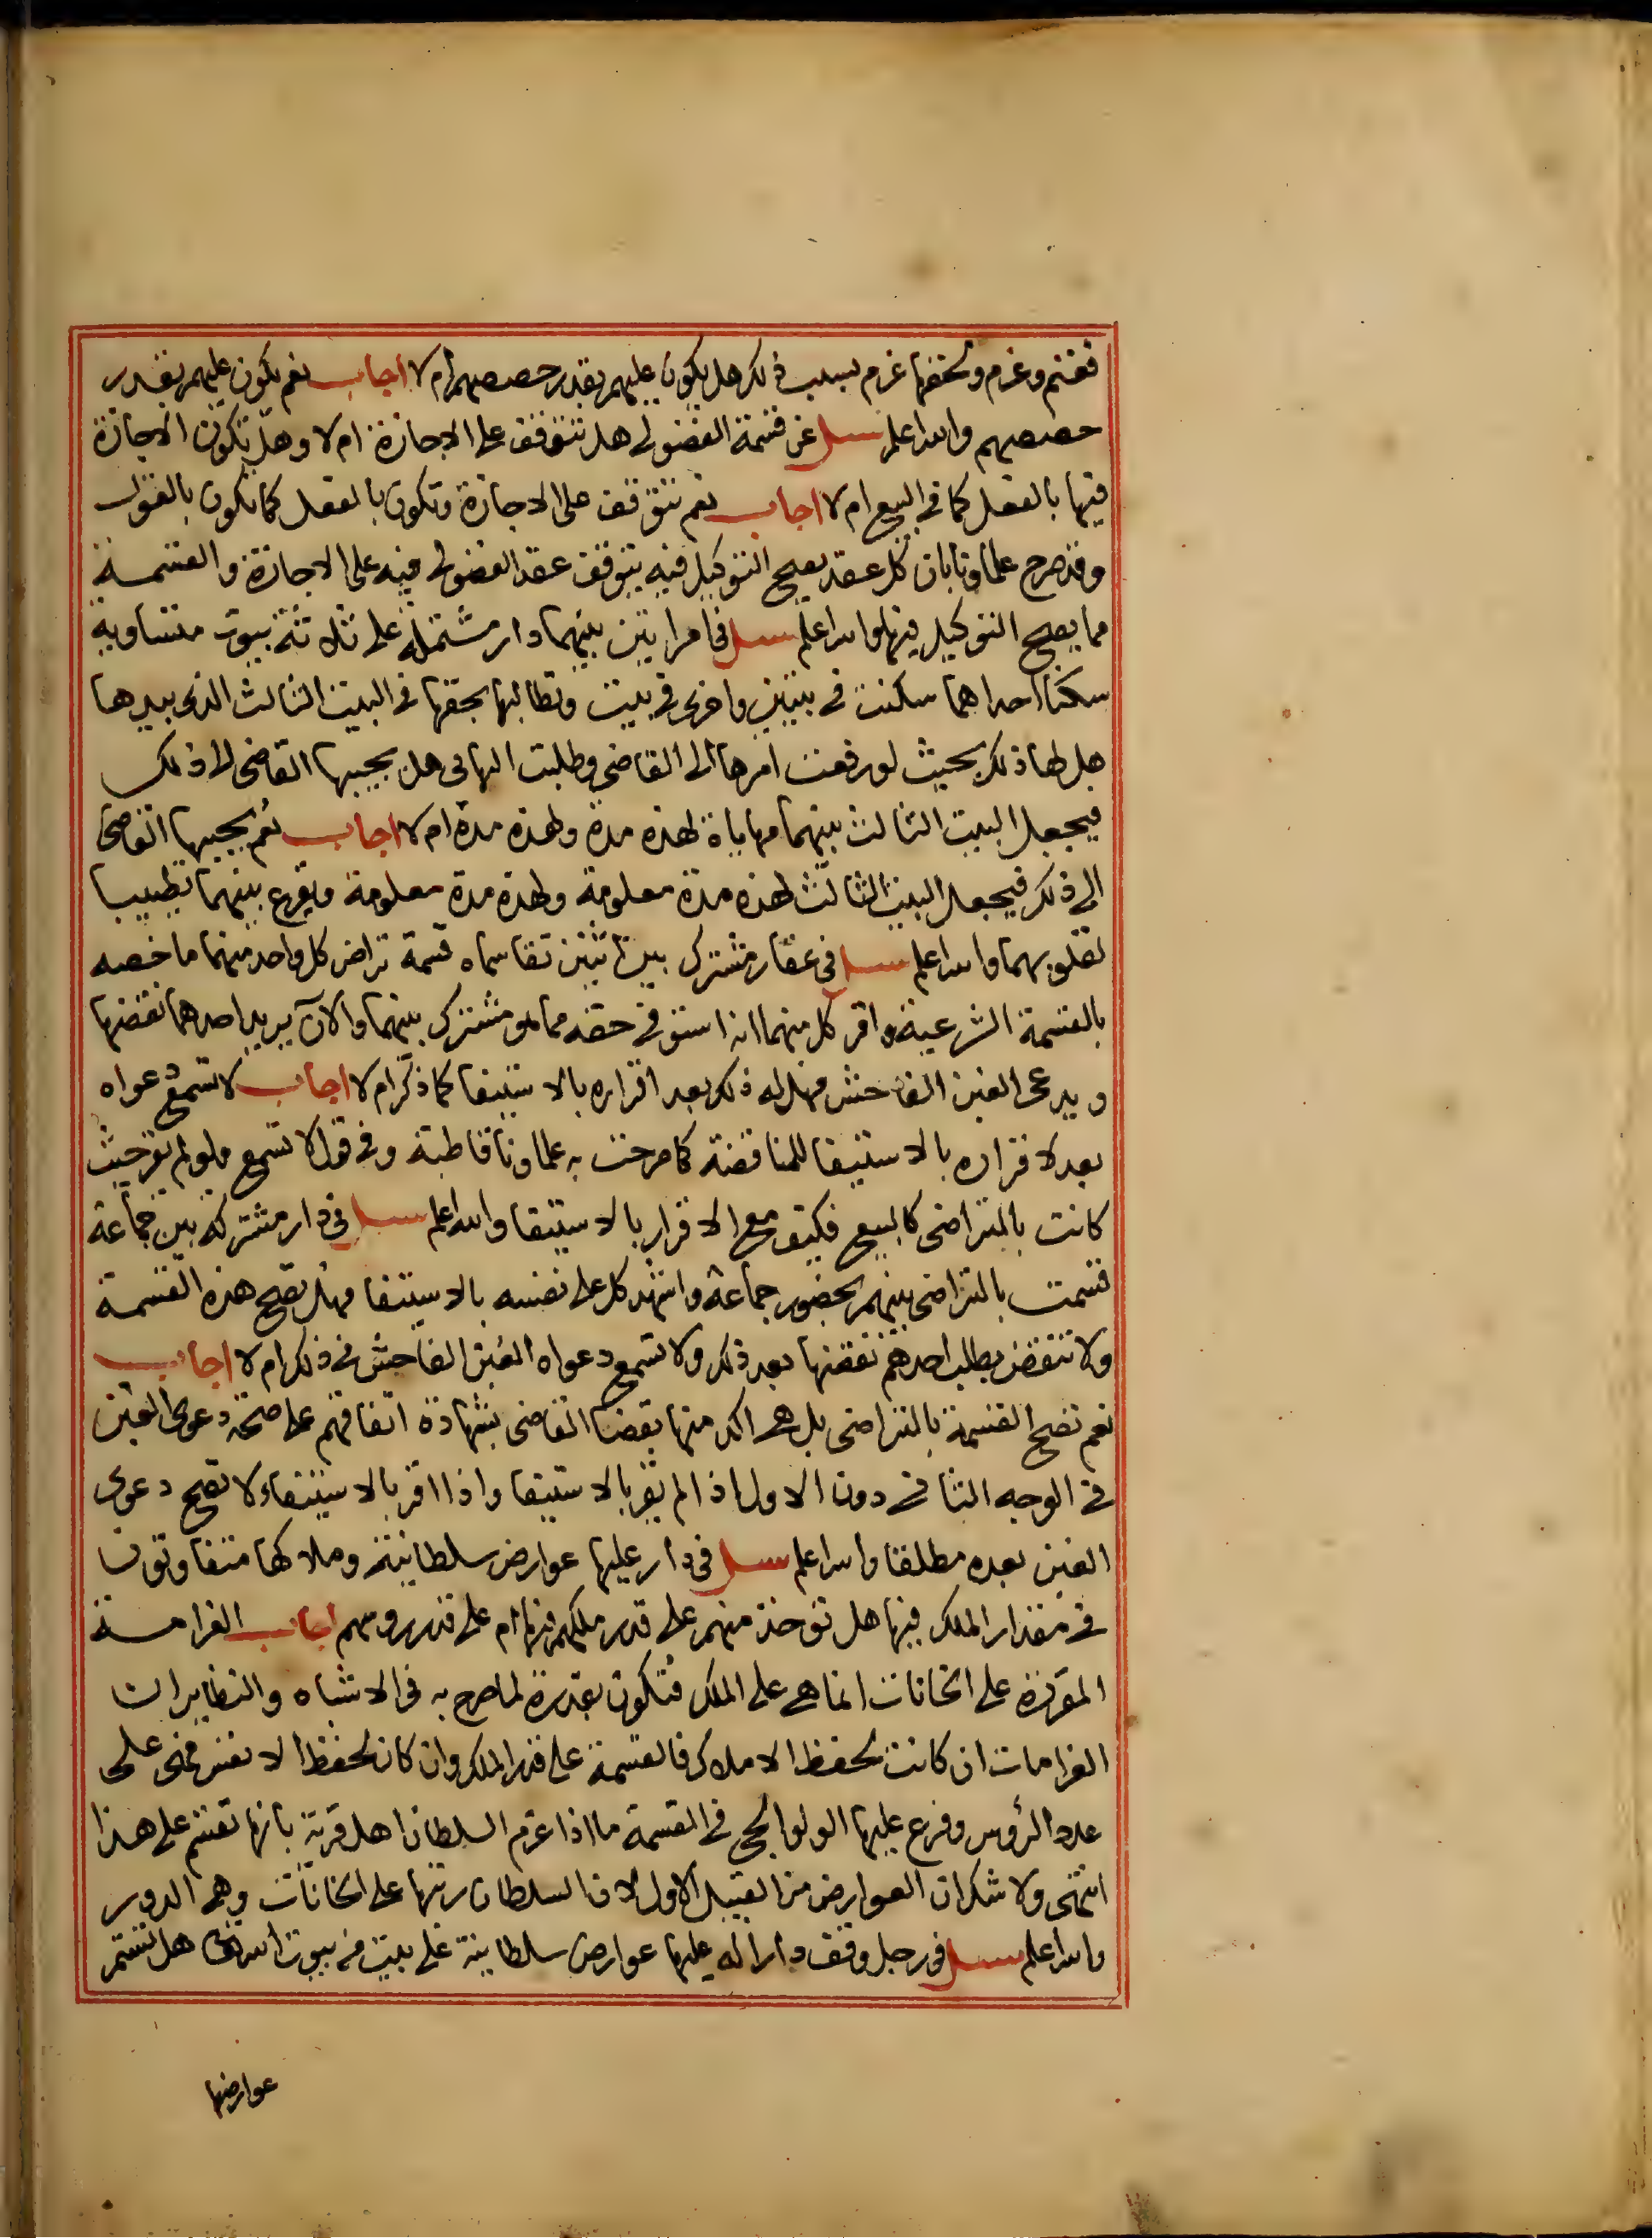 فغنم وغرم ولحقها غرم بسبب ذلك هل يكون عليهم بقدر حصصهم ام لا اجاب نعم يكون عليهم بقدر
حصصهم والله اعلم سئل عن قسمة الفضولى هل تتوقف على الاجازة ام لا وهل تكون الاجازة
فيها بالفعل كما فى البيع ام لا اجاب نعم تتوقف على الاجازة وتكون بالفعل كما تكون بالقول
وقد صرح علماونا بان كل عقد يصح التوكيل فيه يتوقف عقد الفضولى فيه على الاجازة والقسمة
مما يصح التوكيل فيها والله اعلم سئل فى امراتين بينهما دار مشتملة على ثلاثة بيوت متساوية
سكنا احداهما سكنت فى بيتين واخرى فى بيت وتطالبها بحقها فى البيت الثالث الذى بيدها
هل لها ذلك بحيث لو رفعت امرها الى القاضى وطلبت التهايى هل يجيبها القاضى الى ذلك
فيجعل البيت الثالث بينهما مهاياة لهذه مدة ولهذه مدة ام لا اجاب نعم يجيبها القاضى
الى ذلك فيجعل البيت الثالث لهذه مدة معلومة ولهذه مدة معلومة ويقرع بينهما تطييبا
لقلوبهما والله اعلم سئل فى عقار مشترك بين اثنين تقاسماه قسمة تراض كل واحد منهما ما خصه
بالقسمة الشرعية واقر كل منهما انه استوفى حقه مما هو مشترك بينهما والآن يريد احدهما نقضها
ويدعى الغبن الفاحش فهل له ذلك بعد اقراره بالاستيفا كما ذكر ام لا اجاب لا تسمع دعواه
بعد لاقراره بالاستيفا للمناقضة كما صرحت به علماونا قاطبة وفى قول لا تسمع ولو لم يقر حيث
كانت بالتراضى كالبيع فكيف مع الاقرار بالاستيفا والله اعلم سئل فى دار مشتركة بين جماعة
قسمت بالتراضى بينهم بحضور جماعة واشهد كل على نفسه بالاستيفا فهل تصح هذه القسمة
ولا تنقض بطلب احدهم نقضها بعد ذلك ولا تسمع دعواه الغبن الفاحش فى ذلك ام لا اجاب
نعم تصح القسمة بالتراضى بل هى اكد منها بقضا القاضى بشهادة اتفاقهم على صحة دعوى الغبن
فى الوجه الثانى دون الاول اذا لم يقر بالاستيفا واذا اقر بالاستيفاء لا تصح دعوى
الغبن بعده مطلقا والله اعلم سئل فى دار عليها عوارض سلطانية وملاكها متفاوتون
فى مقدار الملك فيها هل توخذ منهم على قدر ملكهم فيها ام على قدر روسهم اجاب الغرامة
المقررة على الخانات انما هى على الملك فتكون بقدره لما صرح به فى الاشباه والنظاير ان
الغرامات ان كانت لحفظ الاملاك فالقسمة على قدر الملك وان كان لحفظ الانفس فهى على
عدد الرؤس وفرع عليها الولوالجى فى القسمة ما اذا غرم السلطان اهل قرية بانها تقسم على هذا
انتهى ولا شك ان العوارض من القبيل الاول لان السلطان رتبها على الخانات وهى الدور
والله اعلم سئل فى رجل وقف دارا له عليها عوارض سلطانية على بيت من بيوت الله تعالى هل تستمر
عوارضها